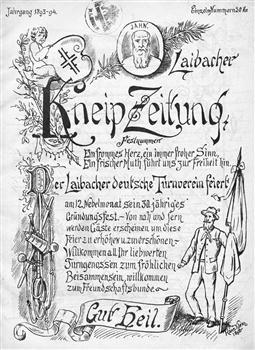 Jahrgang 1893-94.
Einzeln Nummern 20 Kr
JAHN.
Laibacher
Kneip Zeitung.
Festnummer
Ein frommes Herz, ein immer froher Sinn,
Ein frischer Muth führt uns zur Freiheit hin.
Der Laibacher deutsche Turnverein feiert
am 12. Nebelmonat sein 30. jähriges
Gründungsfest. – Von nah und fern
werden Gäste erscheinen um diese
Feier zu erhöhen u. zu verschönen –
Willkommen all' Ihr liebwerten
Turngenossen zum fröhlichen
Beisammensein, willkommen
zum Freundschaftsbunde
Gut Heil.